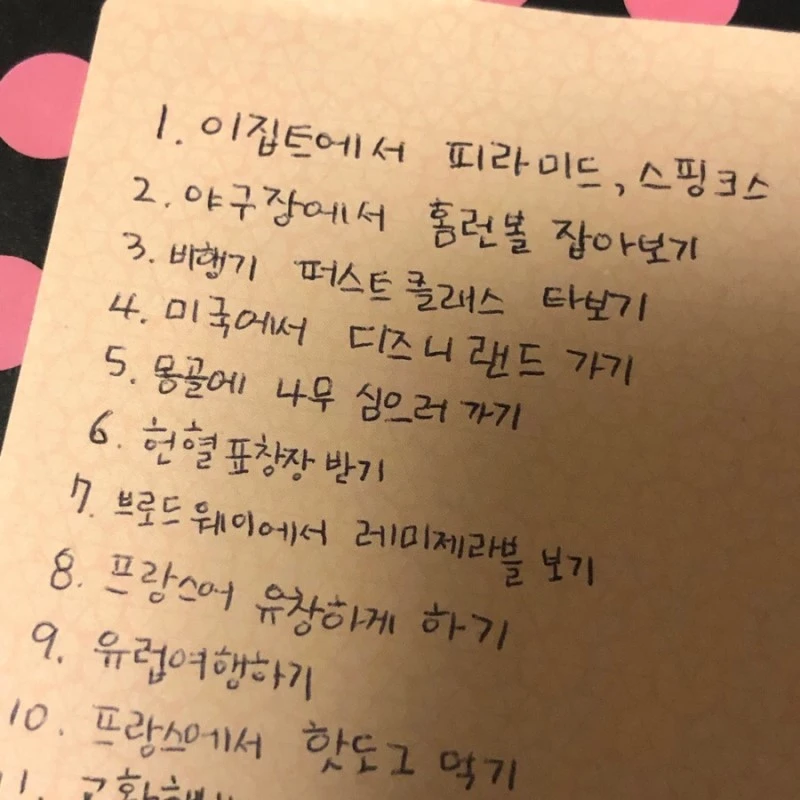 1. 이집트에서 피라미드, 스핑크스
2. 야구장에서 홈런볼 잡아보기
3. 비행기 퍼스트클래스 타보기
4. 미국에서 디즈니랜드 가기
5. 몽골에 나무 심으러 가기
6. 헌혈표창장 받기
7. 브로드웨이에서 레미제라블 보기
8. 프랑스어 유창하게 하기
9. 유럽여행하기
10. 프랑스에서 핫도그 먹기
11.